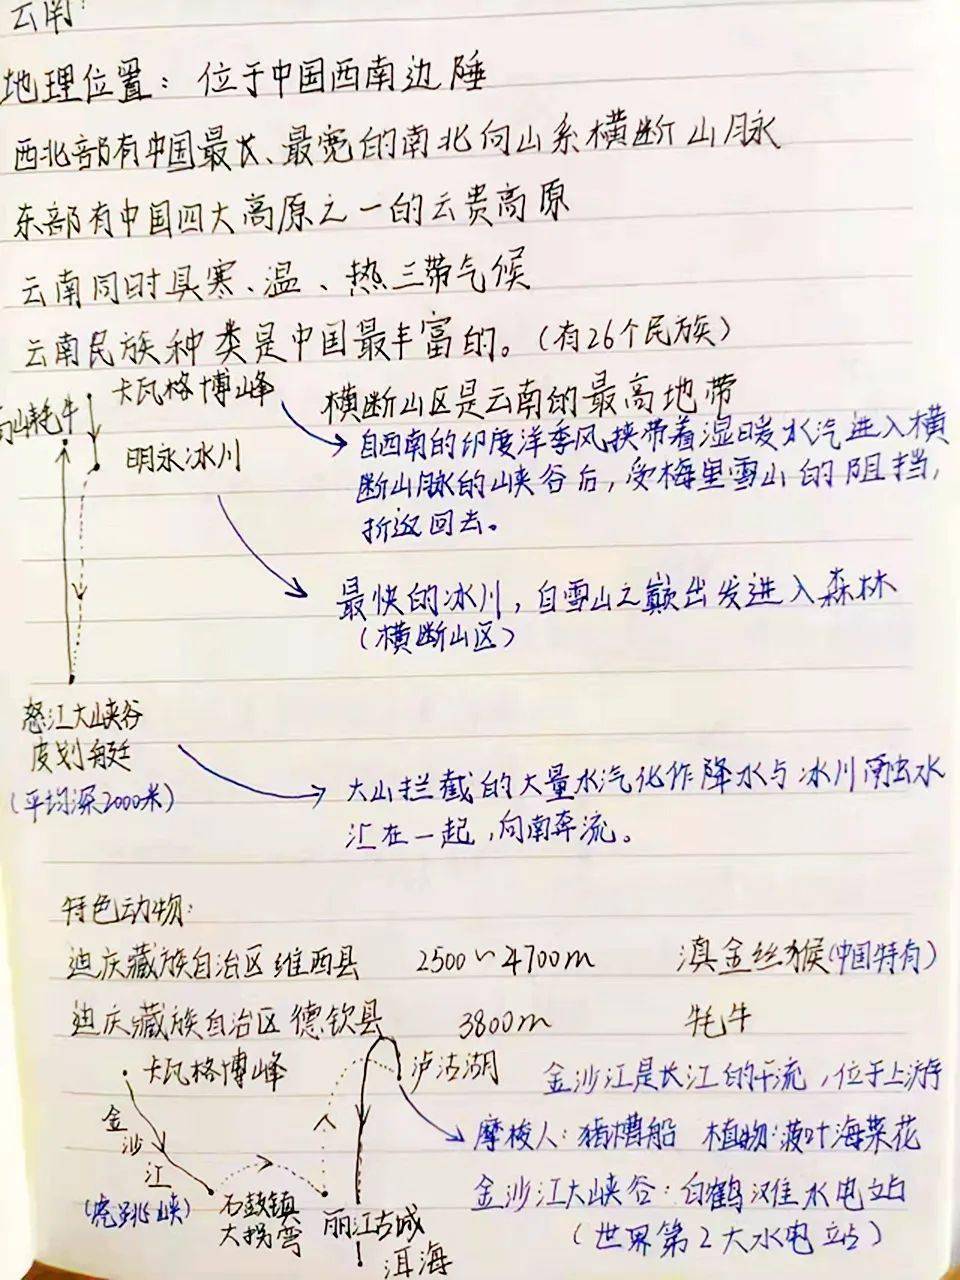 云南:
地理位置：位于中国西南边陲
西北部有中国最长、最宽的南北向山系横断山脉
东部有中国四大高原之一的云贵高原
云南同时具寒、温、热三带气候
云南民族种类是中国最丰富的。(有26个民族)
卡瓦格博峰
横断山区是云南的最高地带
山牦牛
自西南的印度洋季风,挟带着湿暖水汽进入横
明永冰川
断山脉的山峡谷后,受梅里雪山的阻挡,
折返回去。
最快的冰川,自雪山之巅出发进入森林
(横断山区)
怒江大峡谷
皮划艇
(平均深2000米)
大山拦截的大量水汽化作降水与冰川融水
汇在一起,向南奔流。
特色动物:
迪庆藏族自治区维西县 2500~4700m 滇金丝猴(中国特有)
迪庆藏族自治区德钦县 3800m 牦牛
卡瓦格博峰
泸沽湖
金沙江是长江的干流,位于上游
金沙江
摩梭人:猪槽船 植物:波叶海菜花
(虎跳峡)
石鼓镇
大拐弯
丽江古城
洱海
金沙江大峡谷:白鹤滩水电站
(世界第2大水电站)